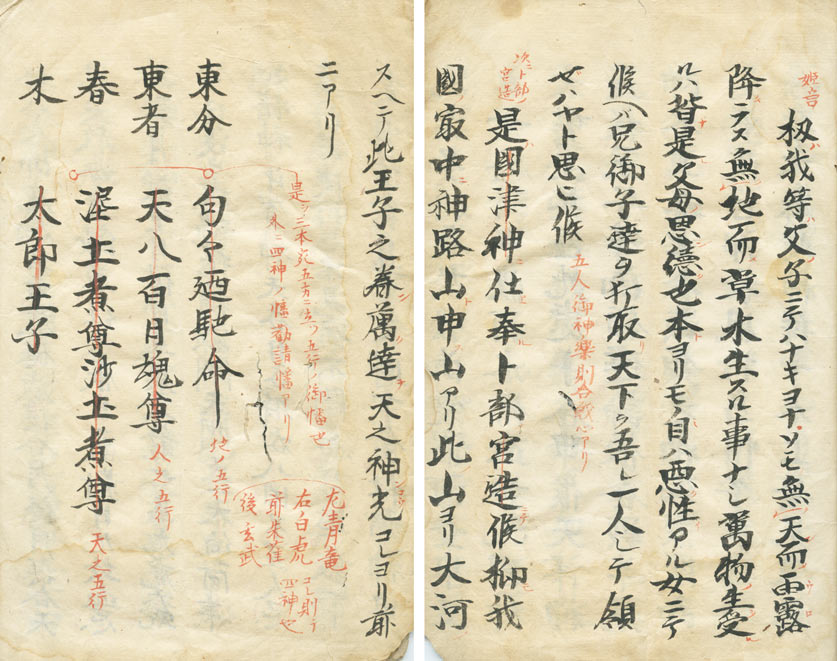 姫宮
扨我等父子ニテハナキヨナソモ無天而雨露
降ラス無地而草木生スル事ナシ萬物生受
ハ皆是父母恩徳也本ヨリモノ目ハ悪性アル女ニテ
候ヘハ兄御子達ヲ打取天下ヲ吾レ一人シテ領
セハヤト思ヒ候
五人御神楽則合戦心アリ
次ニト部ノ宮造
是國津神仕奉ト部宮造候抑我
國最中神路山申山アリ此山ヨリ大河
スヘテ此王子之眷属達天之神光コレヨリ前
ニアリ
是ヲ三本死五方ニ立ツ五行ノ御幡也
外ニ四神ノ幡勧請幡アリ
左青竜
右白虎
前朱雀
後玄武
コレ則チ
四神也
東分 句々廼馳命 地ノ五行
東者 天八百日魂尊 人之五行
春 泥土煮尊沙土煮尊 天之五行
木 太郎王子